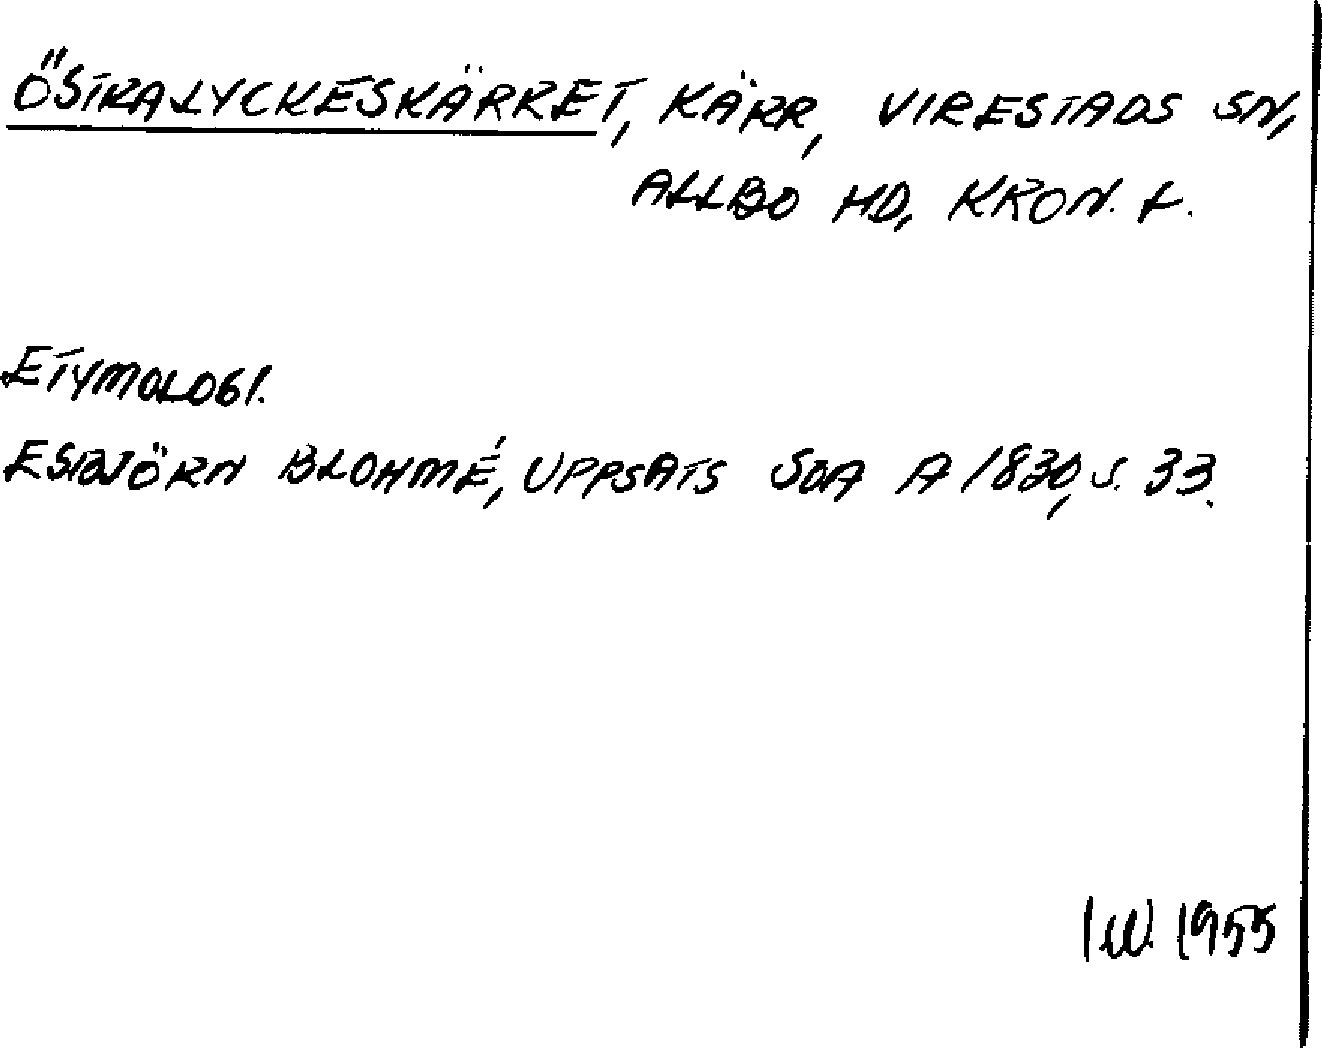 ÖSTRALYCKESKÄRRET, KÄRR, VIRESTADS SN,
ALLBO HD, KRON. L.
ETYMOLOGI.
ESBJÖRN BLOHMÉ, UPPSATS SOA A 1830, S. 33.
IW. 1955